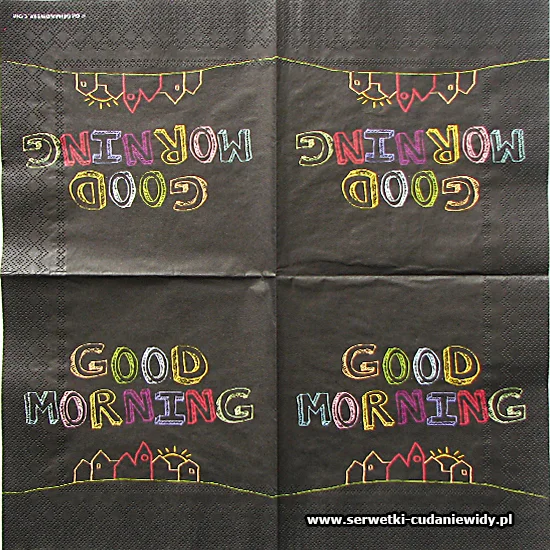 MORNING
GOOD
MORNING
GOOD
GOOD
MORNING
GOOD
MORNING
www.serwetki-cudaniewidy.pl